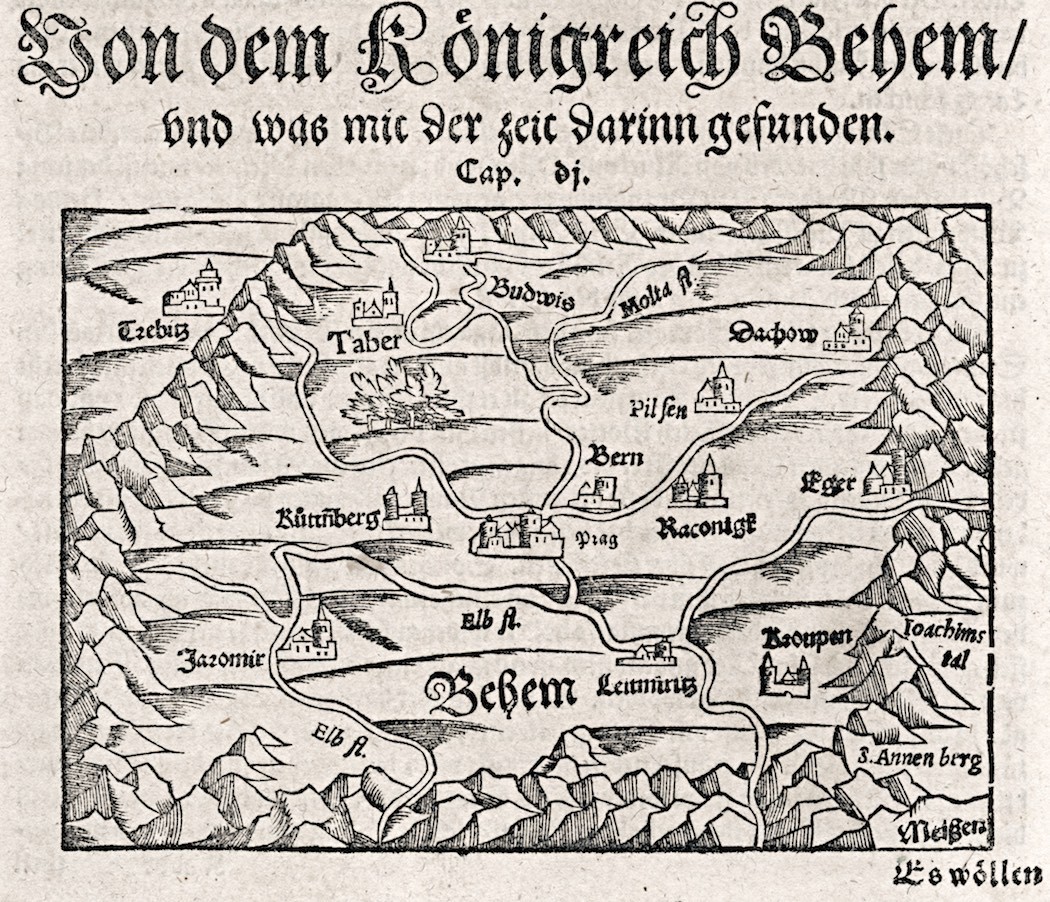 Von dem Königreich Behem/
vnd was mit der zeit darinn gefunden.
Cap. dj.
Budwis
Molta fl.
Trebitz
Taber
Dachow
Pilsen
Bern
Eger
Kuttñberg
Raconigk
Prag
Elb fl.
Kroupen
Ioachims
tal
Jaromir
Behem
Leitmiritz
Elb fl.
S. Annen berg
Meißen
Es wöllen